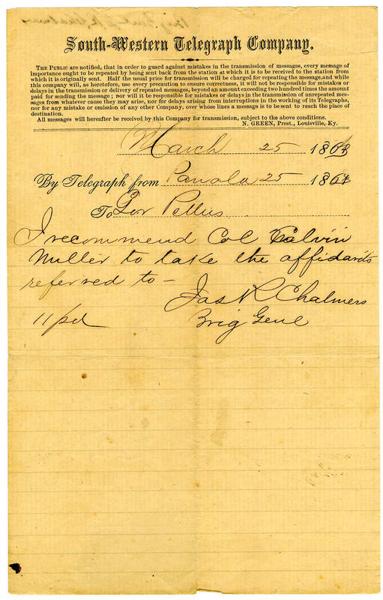 South-Western Telegraph Company.
THE PUBLIC are notified, that in order to guard against mistakes in the transmission of messages, every message of
importance ought to be repeated by being sent back from the station at which it is to be received to the station from
which it is originally sent. Half the usual price for transmission will be charged for repeating the message, and while
this company will, as heretofore, use every precaution to ensure correctness, it will not be responsible for mistakes or
delays in the transmission or delivery of repeated messages, beyond an amount exceeding two hundred times the amount
paid for sending the message; nor will it be responsible for mistakes or delays in the transmission of unrepeated mes-
sages from whatever cause they may arise, nor for delays arising from interruptions in the working of its Telegraphs,
nor for any mistake or omission of any other Company, over whose lines a message is to be sent to reach the place of
destination.
All messages will hereafter be received by this Company for transmission, subject to the above conditions.
N. GREEN, Prest., Louisville, Ky.
March 25 1863
By Telegraph from Panola 25 186
To Gov Pettus
I recommend Col Calvin
Miller to take the affidavits
referred to -
Jas R Chalmers
11 pd
Brig Genl